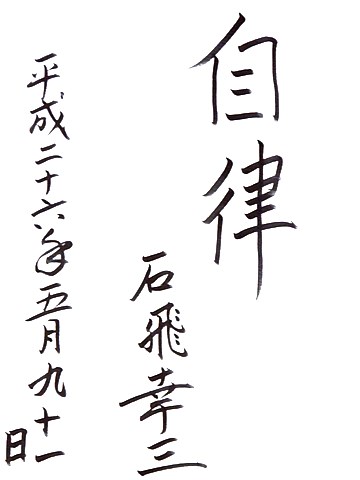 自律
石飛幸三
平成二十六年五月九十一
日